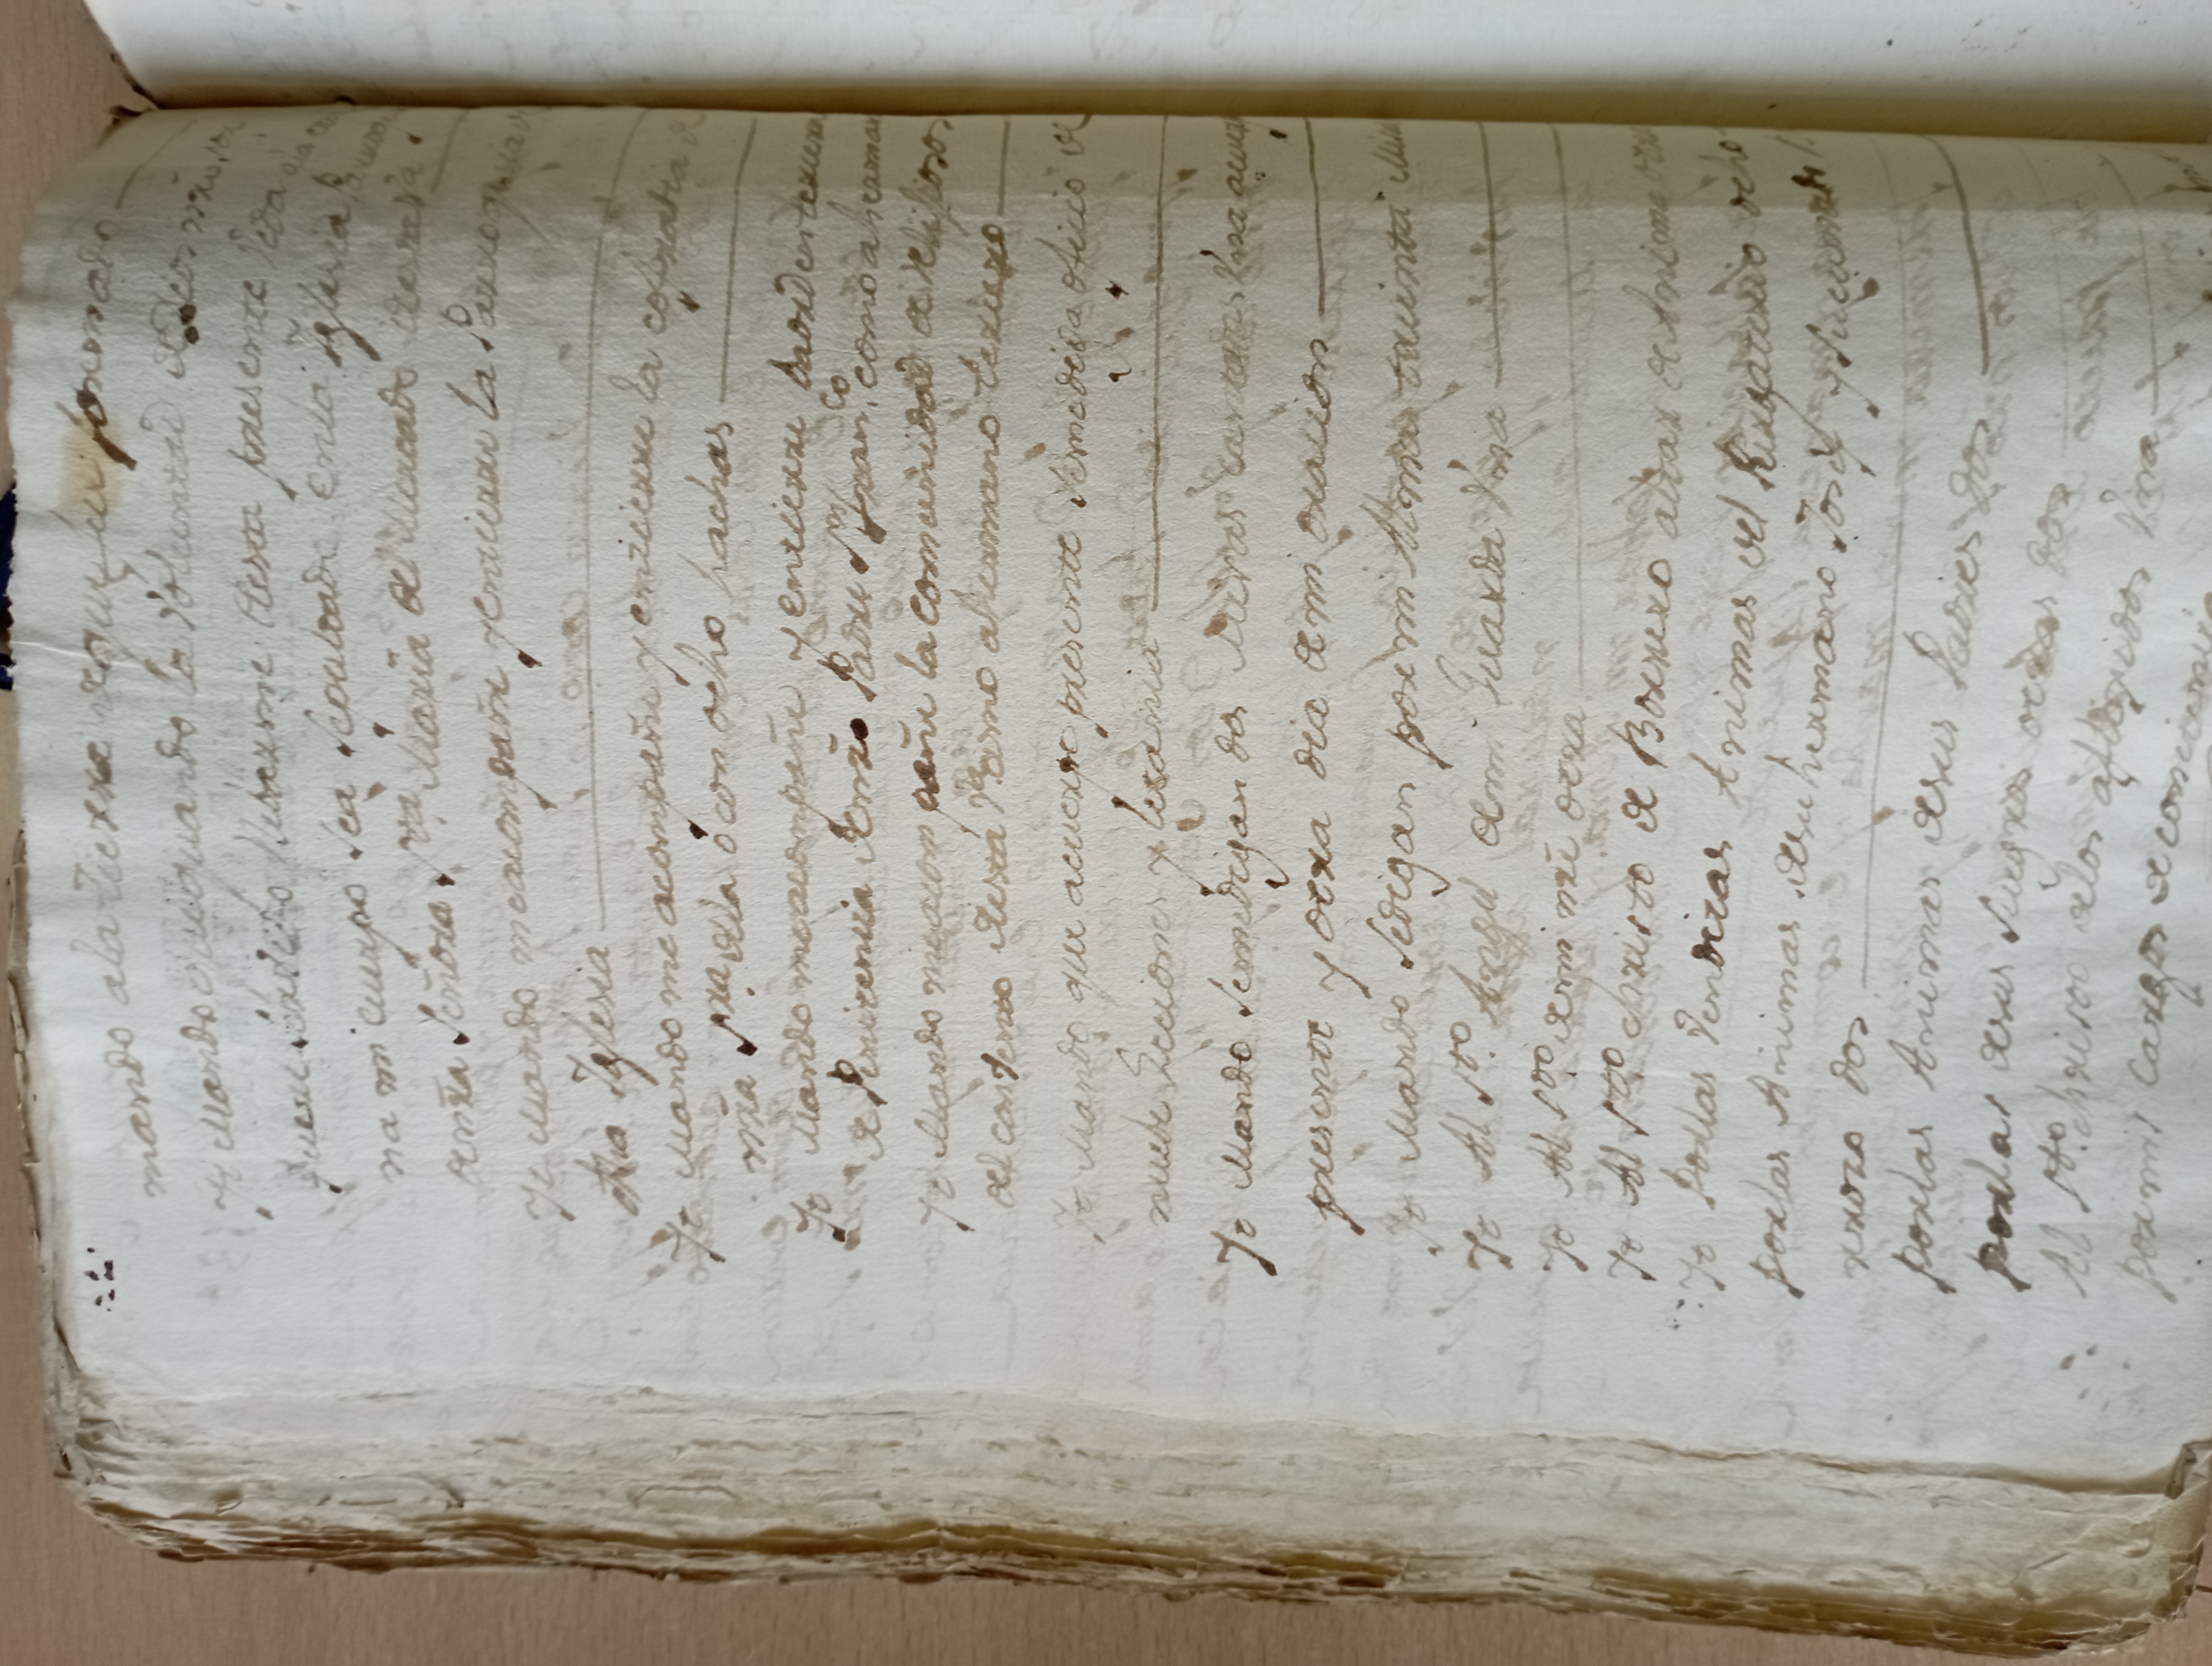 mando a la tierra de que fui formado
It Mando que quando la Voluntad de Dios nro sor
fuere servido llebarme desta presente Vida a la eter
na mi cuerpo sea sepultado en la Iglesia Parroquial
de nra Señora Sra Maria del Mercado desta Va
It Mando me acompañe y entierre la Parroquia de
dha Iglesia
It Mando me acompañe y entierre la cofradia de
nra Sra de la o con ocho hachas
It Mando me acompañe y entierre la orden tercera
de Penitencia de nro Padre Sn Franco como a herman
It Mando me acompañe la comunidad de Relijiosos
del conbento desta Va como a hermano tercero
It Mando que a cuerpo presente se me diga oficio de
nuebe Leciones y letania
It Mando se me digan dos Misas cantadas Vna a cuerpo
presente y otra dia de mi oracion
It Mando se digan por mi Alma treinta Misas
It Al Sto Angel de mi Guarda Vna
It Al Sto de mi nre otra
It Al Sto christo de Borrero altar de Animas otra
It Por las Venditas Animas del Purgaterio ocho
por las Animas de su hermano Josef y su
dos
por las Animas de sus Padres dos
por las de sus suegros otras dos
Al Sto christo de los aflogidos Vna
por mis cargos de conciencia